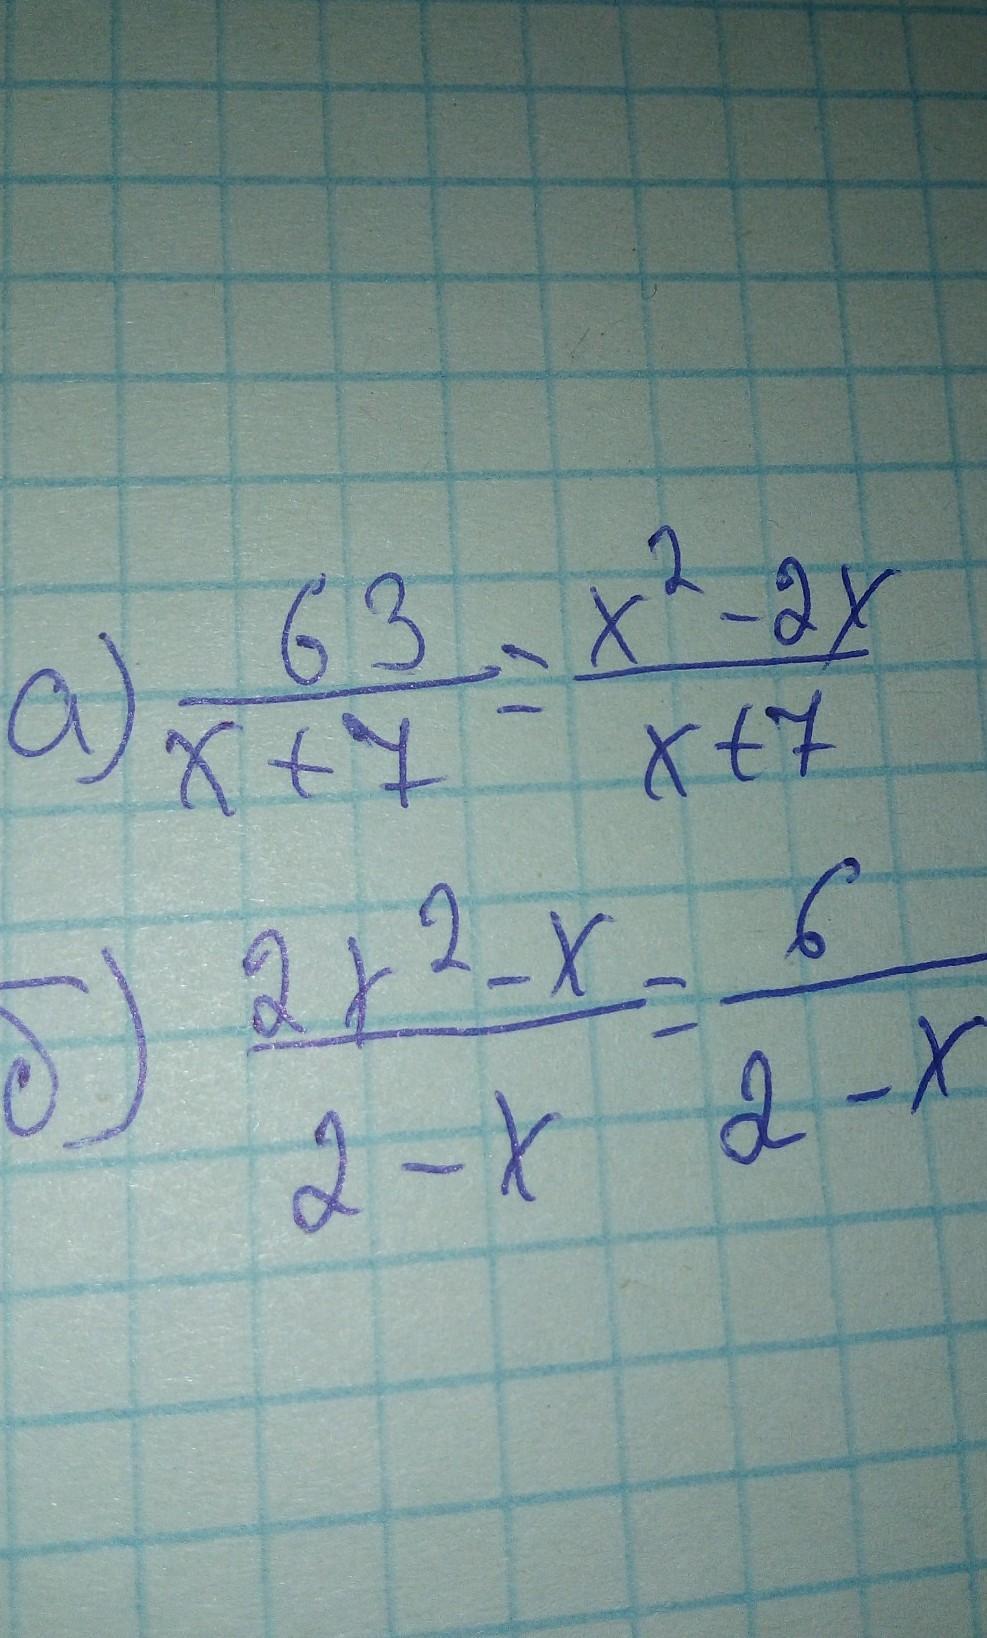 а) 63/(x+7) = (x²-2x)/(x+7)
б) (2x²-x)/(2-x) = 6/(2-x)